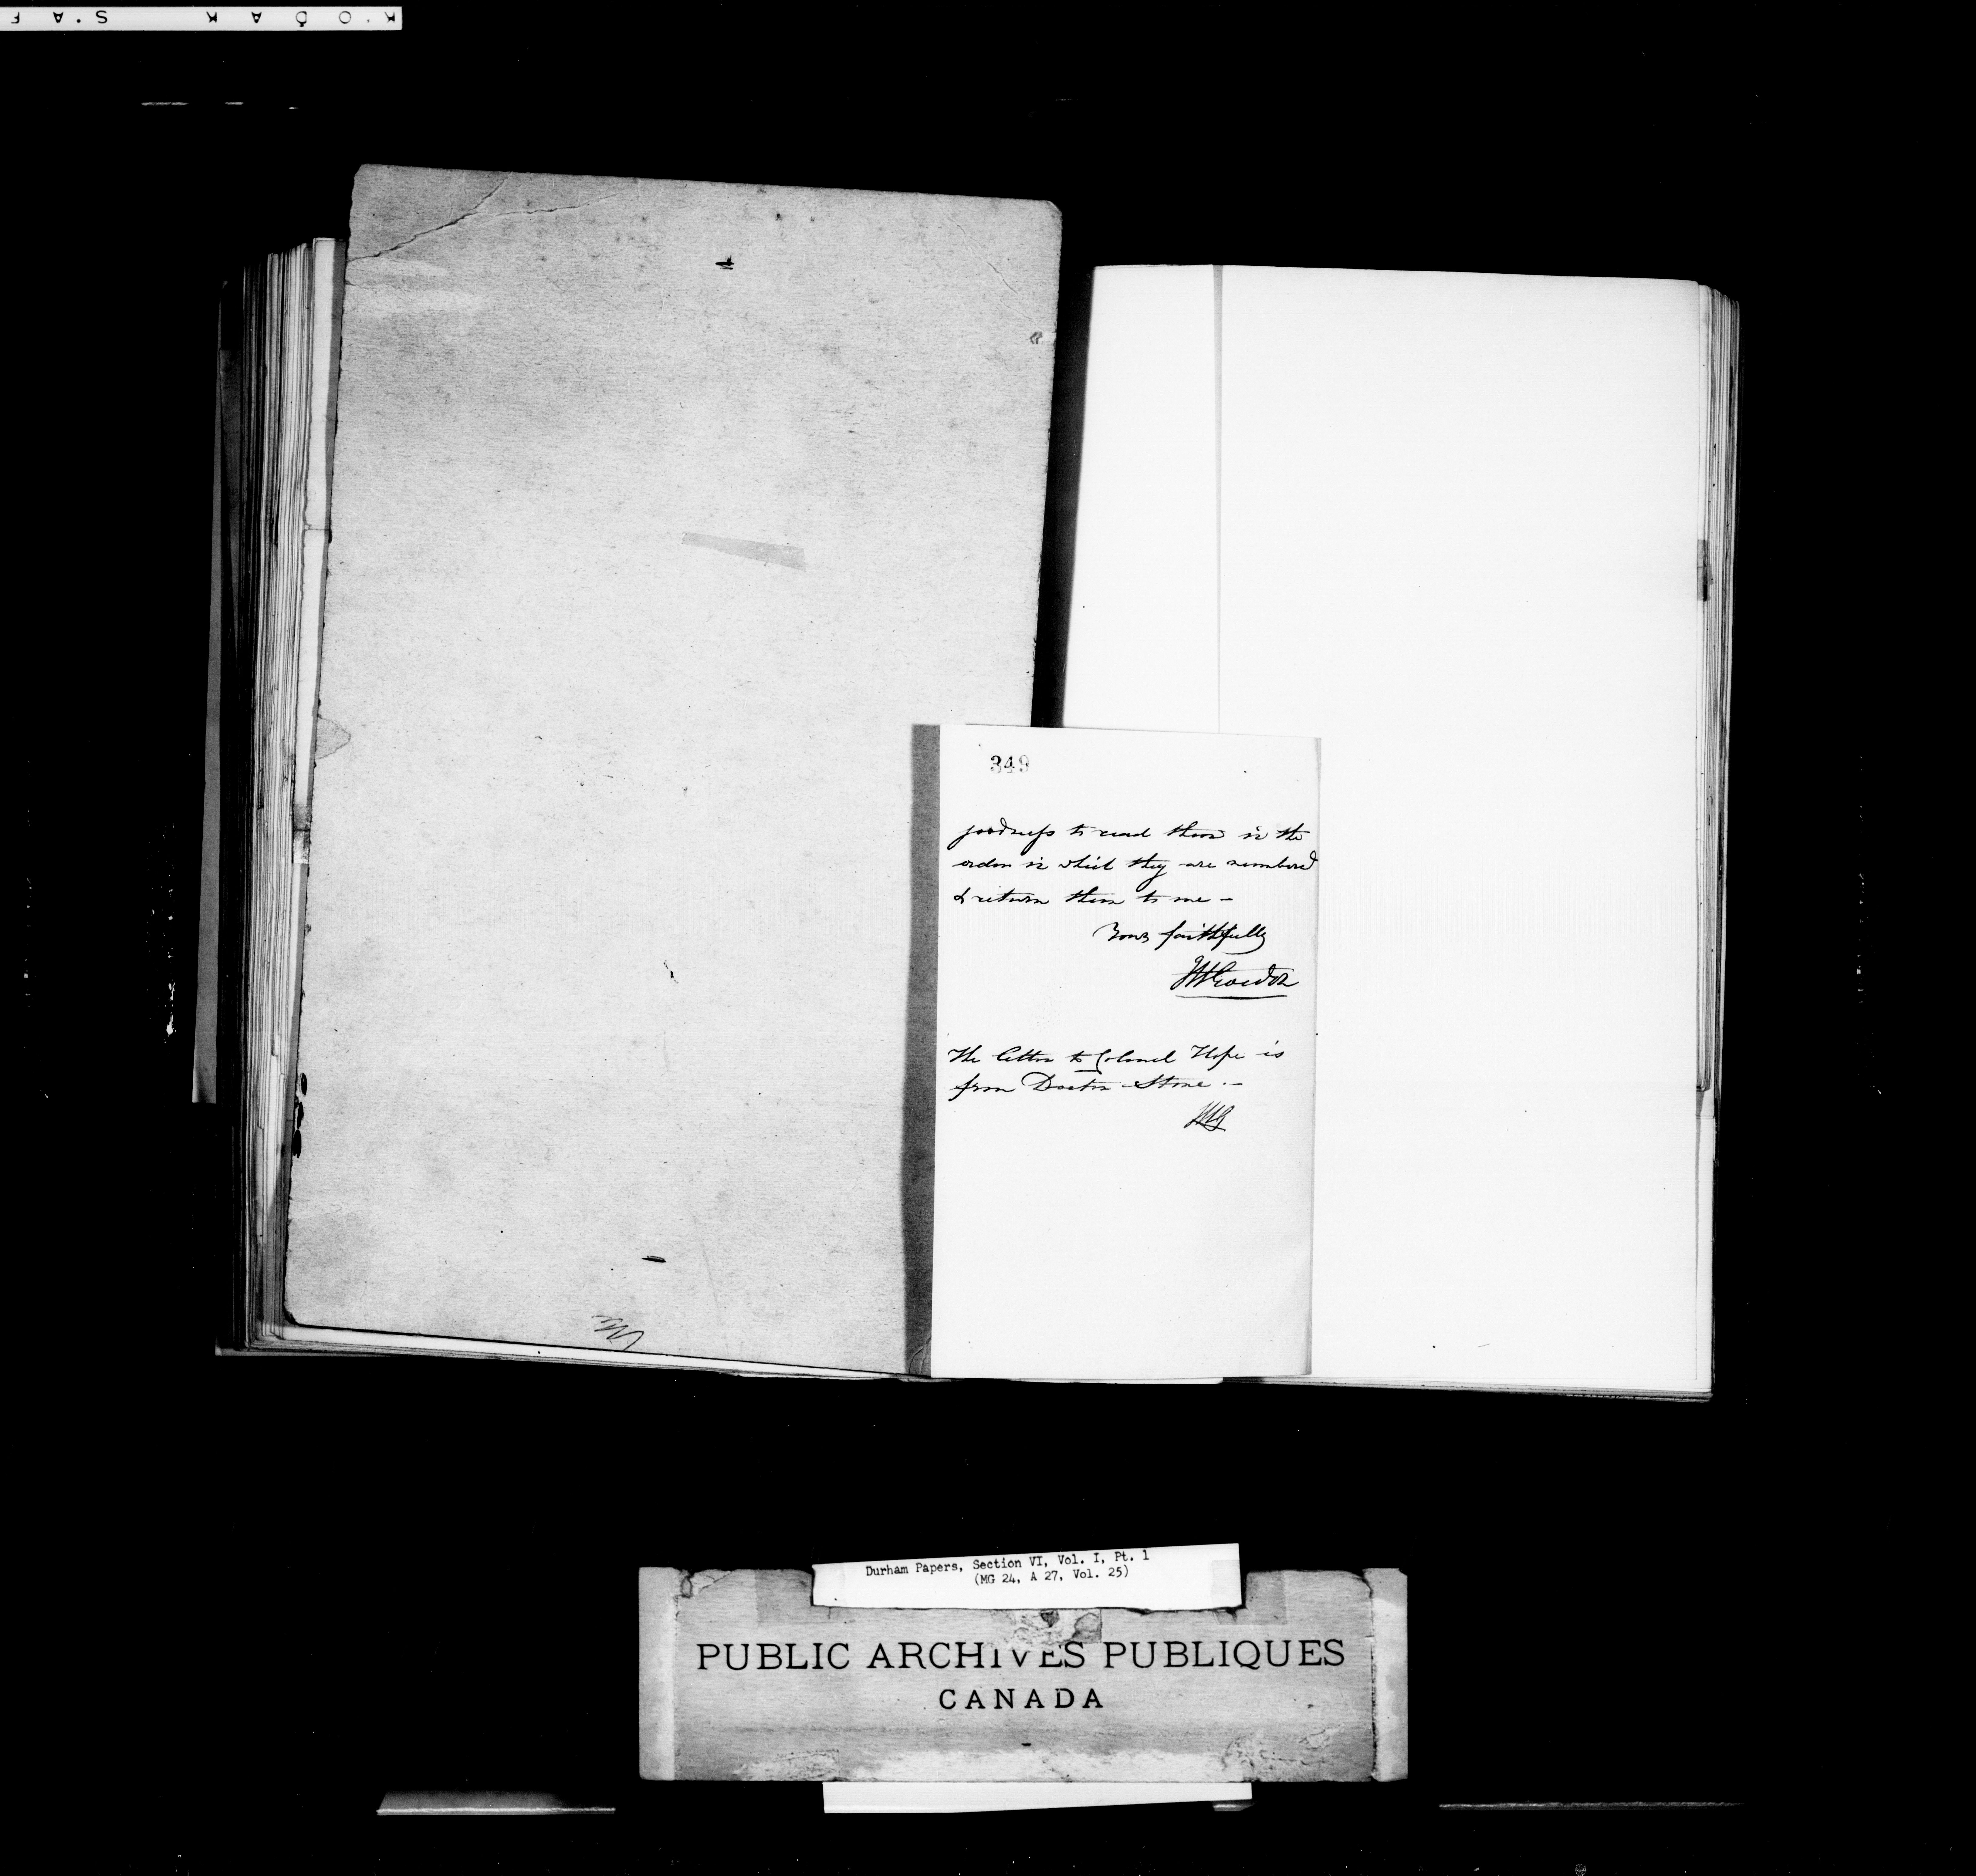 KODAK S.A F
349
goodness to read them in the
order in which they are numbered
& return them to me -
Yours faithfully
The letter to Colonel Hope is
from Doctor Stone. -
Durham Papers, Section VI, Vol. I, Pt. 1
(MG 24, A 27, Vol. 25)
PUBLIC ARCHIVES PUBLIQUES
CANADA